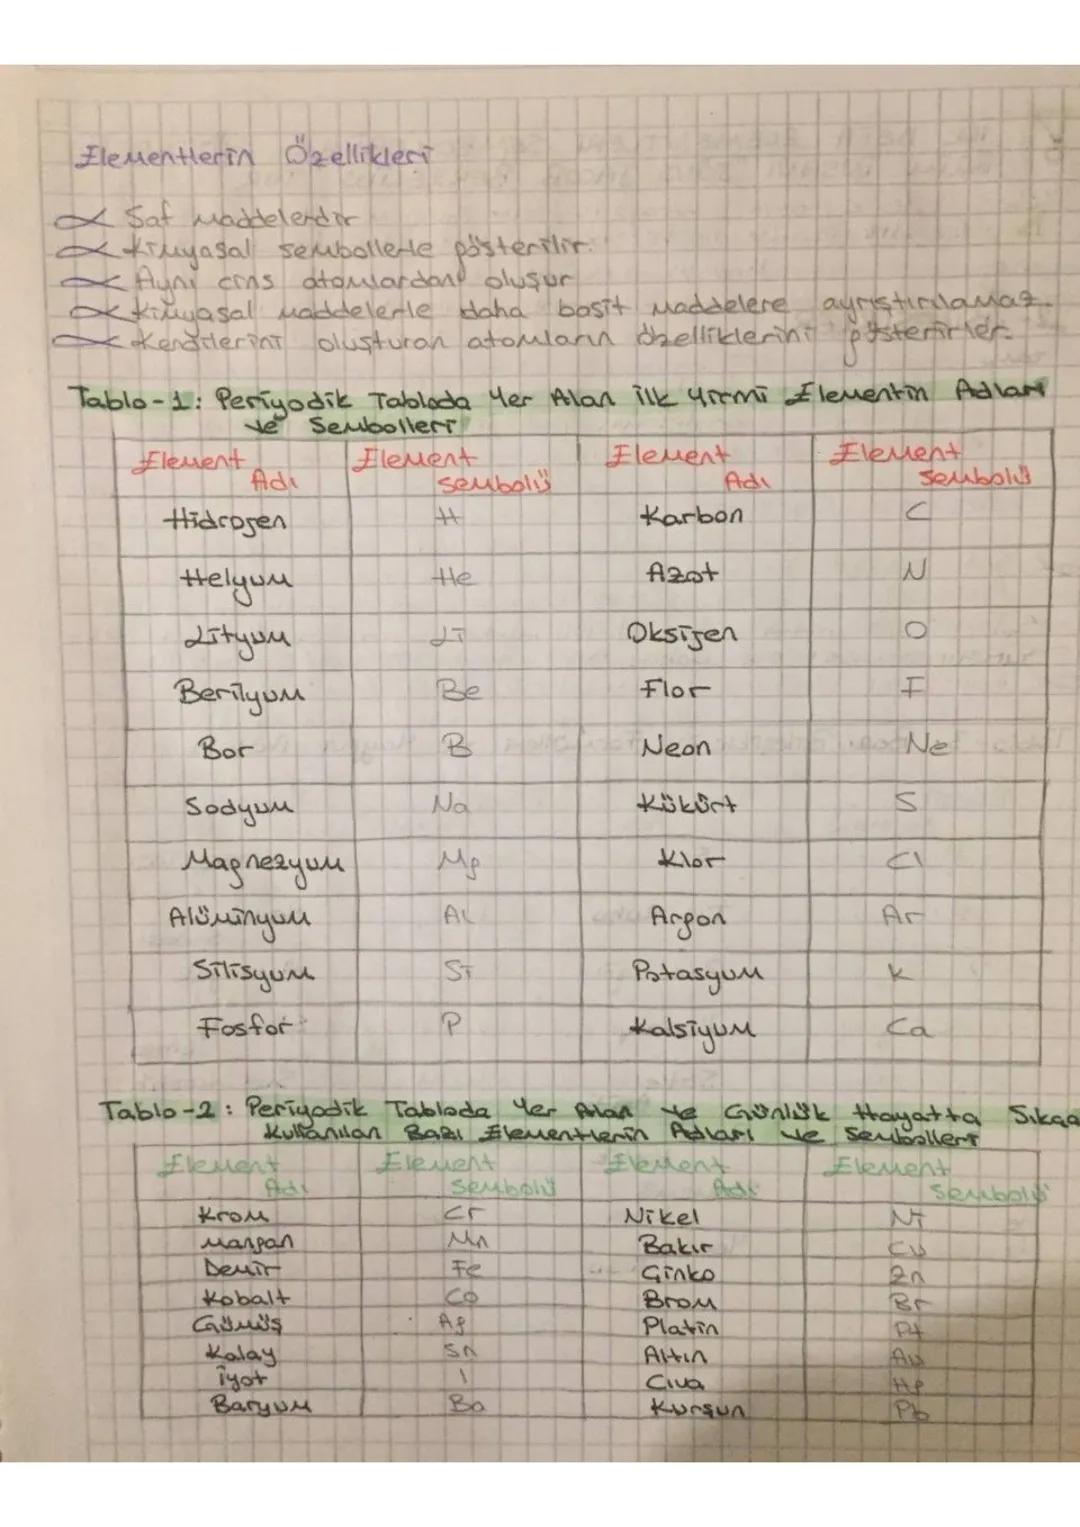 Elementlerin Özellikleri
Saf maddelerdir
Kimyasal sembollerle gösterilir.
Aynı cins atomlardan oluşur
Kimyasal maddelerle daha basit maddelere ayrıştırılamaz.
Kendilerini oluşturan atomların özelliklerini gösterirler.
Tablo-1: Periyodik Tabloda Yer Alan ilk yirmi Elementin Adları
ve Sembolleri
Element Adı Element Sembolü Element Adı Element Sembolü
Hidrojen H Karbon C
Helyum He Azot N
Lityum Li Oksijen O
Berilyum Be Flor F
Bor B Neon Ne
Sodyum Na Kükürt S
Magnezyum Mg Klor Cl
Alüminyum Al Argon Ar
Silisyum Si Potasyum K
Fosfor P Kalsiyum Ca
Tablo-2: Periyodik Tabloda Yer Alan ve Günlük Hayatta Sıkça
Kullanılan Bazı Elementlerin Adları ve Sembolleri
Element Adı Element Sembolü Element Adı Element Sembolü
Krom Cr Nikel Ni
Mangan Mn Bakır Cu
Demir Fe Çinko Zn
Kobalt Co Brom Br
Gümüş Ag Platin Pt
Kalay Sn Altın Au
İyot I Cıva Hg
Baryum Ba Kurşun Pb